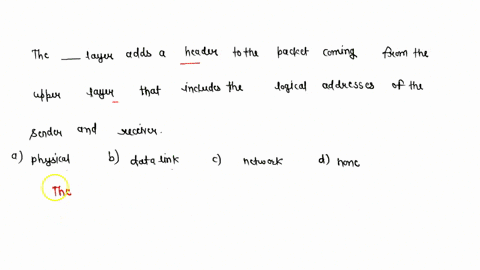 The ___ layer adds a header to the packet coming from the
upper layer that includes the logical addresses of the
sender and receiver.
a) physical b) data link c) network d) none
The